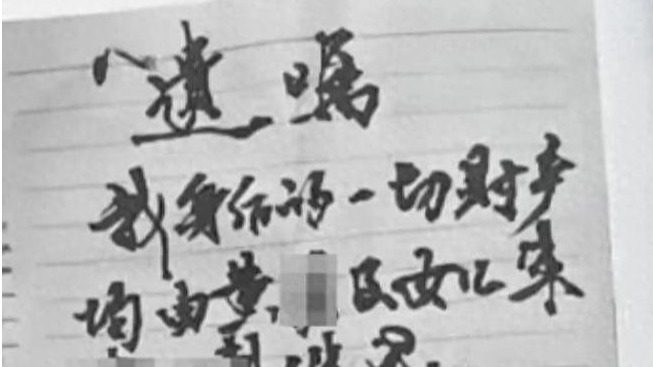 遗嘱
我身后的一切财产
均由黄 及女儿宋